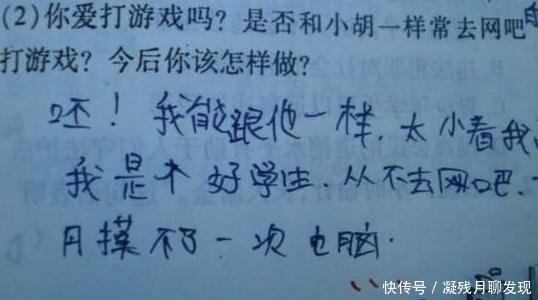 (2)你爱打游戏吗？是否和小胡一样常去网吧的
打游戏？今后你该怎样做？
呸！我能跟他一样，太小看我
我是个好学生．从不去网吧．一
月摸不了一次电脑．
快传号／凝残月聊发现